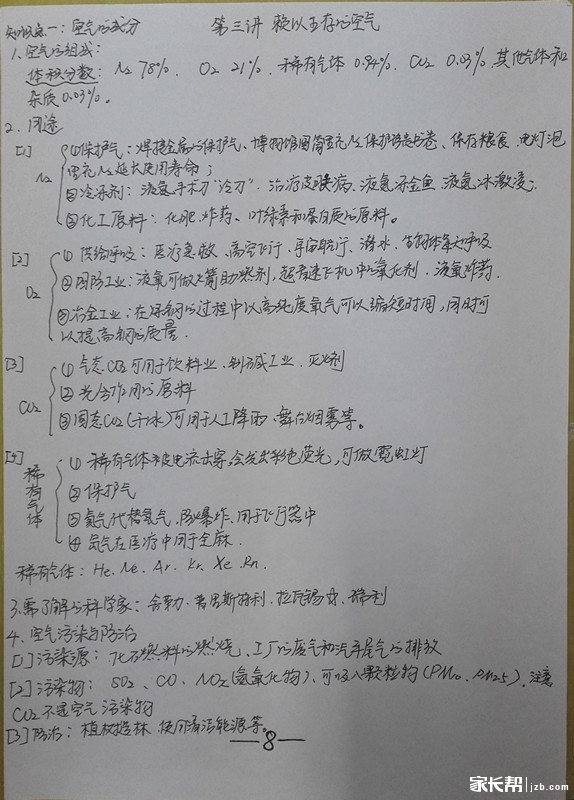 知识点一：空气的成分 第三讲 赖以生存的空气
1.空气的组成：
体积分数：N₂ 78%、 O₂ 21%、稀有气体 0.94%、CO₂ 0.03%、其他气体和
杂质0.03%。
2.用途
[1] ①保护气：焊接金属的保护气、博物馆因简里充N₂保护、保存粮食、电灯泡
里充N₂延长使用寿命；
N₂ ②冷冻剂：液氮手术刀“冷刀”、治疗皮肤病、液氮冻金鱼、液氮冰激凌；
③化工原料：化肥、炸药、叶绿素和蛋白质的原料。
[2] ①供给呼吸：医疗急救、高空飞行、宇宙航行、潜水、呼吸
O₂ ②国防工业：液氧可做火箭助燃剂，超高速飞机中的氧化剂、液氧炸药.
③冶金工业：在炼钢的过程中以高纯度氧气可以缩短时间，同时可
以提高钢的质量.
[3] ①气态CO₂可用于饮料业、制碱工业、灭火剂
CO₂ ②光合作用的原料
③固态CO₂(干冰)可用于人工降雨、舞台烟雾等。
[4] ①稀有气体被电流击穿，会发出彩色荧光，可做霓虹灯
稀有气体 ②保护气
③氦气代替氢气，防爆炸、用于飞行器中
④氙气在医疗中用于全麻.
稀有气体：He、Ne、Ar、Kr、Xe、Rn.
3.需了解的科学家：舍勒、普里斯特利、拉瓦锡、瑞利
4.空气污染与防治
[1]污染源：化石燃料的燃烧、工厂的废气和汽车尾气的排放
[2]污染物：SO₂、CO、NO₂(氮氧化物)、可吸入颗粒物(PM₁₀、PM2.5)，注意
CO₂不是空气污染物
[3]防治：植树造林、使用清洁能源等。
—8—
家长帮 jzb.com